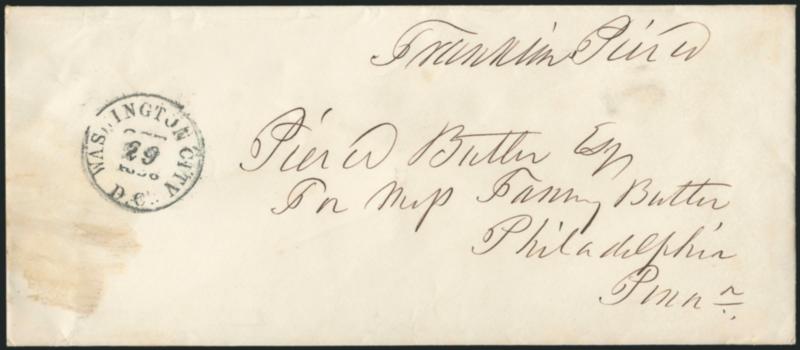 Franklin Pierce
WASHINGTON CITY
29
D.C.
Pierce Butler Esq
For Miss Fanny Butler
Philadelphia
Penna